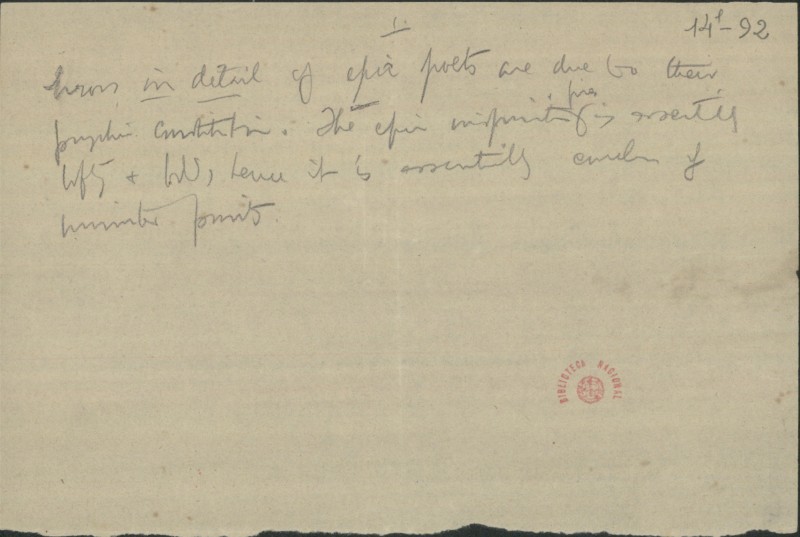 1.
14¹-92
Errors in detail of epic poets are due to their
psychic constitution. The epic inspiration is essentially
lofty & bold, hence it is essentially careless of
minuter points.
BIBLIOTECA NACIONAL